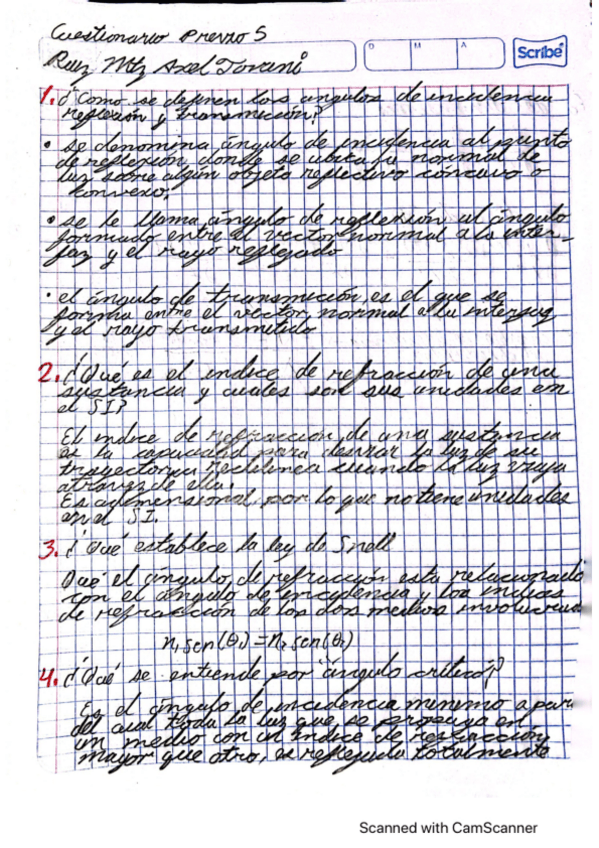 Cuestionario Previo 5
Ruiz Mtz Axel Jovani
D M A
Scribe
1. ¿Como se definen los angulos de incidencia
reflexión y transmición?
• se denomina ángulo de incidencia al punto
de reflexión, donde se ubica la normal de
luz sobre algún objeto reflectivo concavo o
convexo.
• se le llama ángulo de reflexión al ángulo
formado entre el vector normal a la inter-
faz y el rayo reflejado
• el ángulo de transmición, es el que se
forma entre el vector, normal a la interfaz
y el rayo transmitido
2. ¿Qué es el indice de refracción de una
sustancia y cuales son sus unidades en
el SI?
El indice de refracción de una sustancia
es la capacidad para desviar la luz de su
trayectoria rectilinea cuando la luz viaja
através de ella.
Es adimensional por lo que no tiene unidades
en el SI.
3. ¿Qué establece la ley de Snell
Qué el ángulo, de refracción esta relacionado
con el ángulo de incidencia y los indices
de refracción de los dos medios
n₁ sen(θ₁) = n₂ sen(θ₂)
4. ¿Qué se entiende por ángulo critico?
Es el ángulo de incidencia minimo a par
del cual toda la luz que se propaga en
un medio con un indice de refracción
mayor que otro, es reflejada totalmente
Scanned with CamScanner